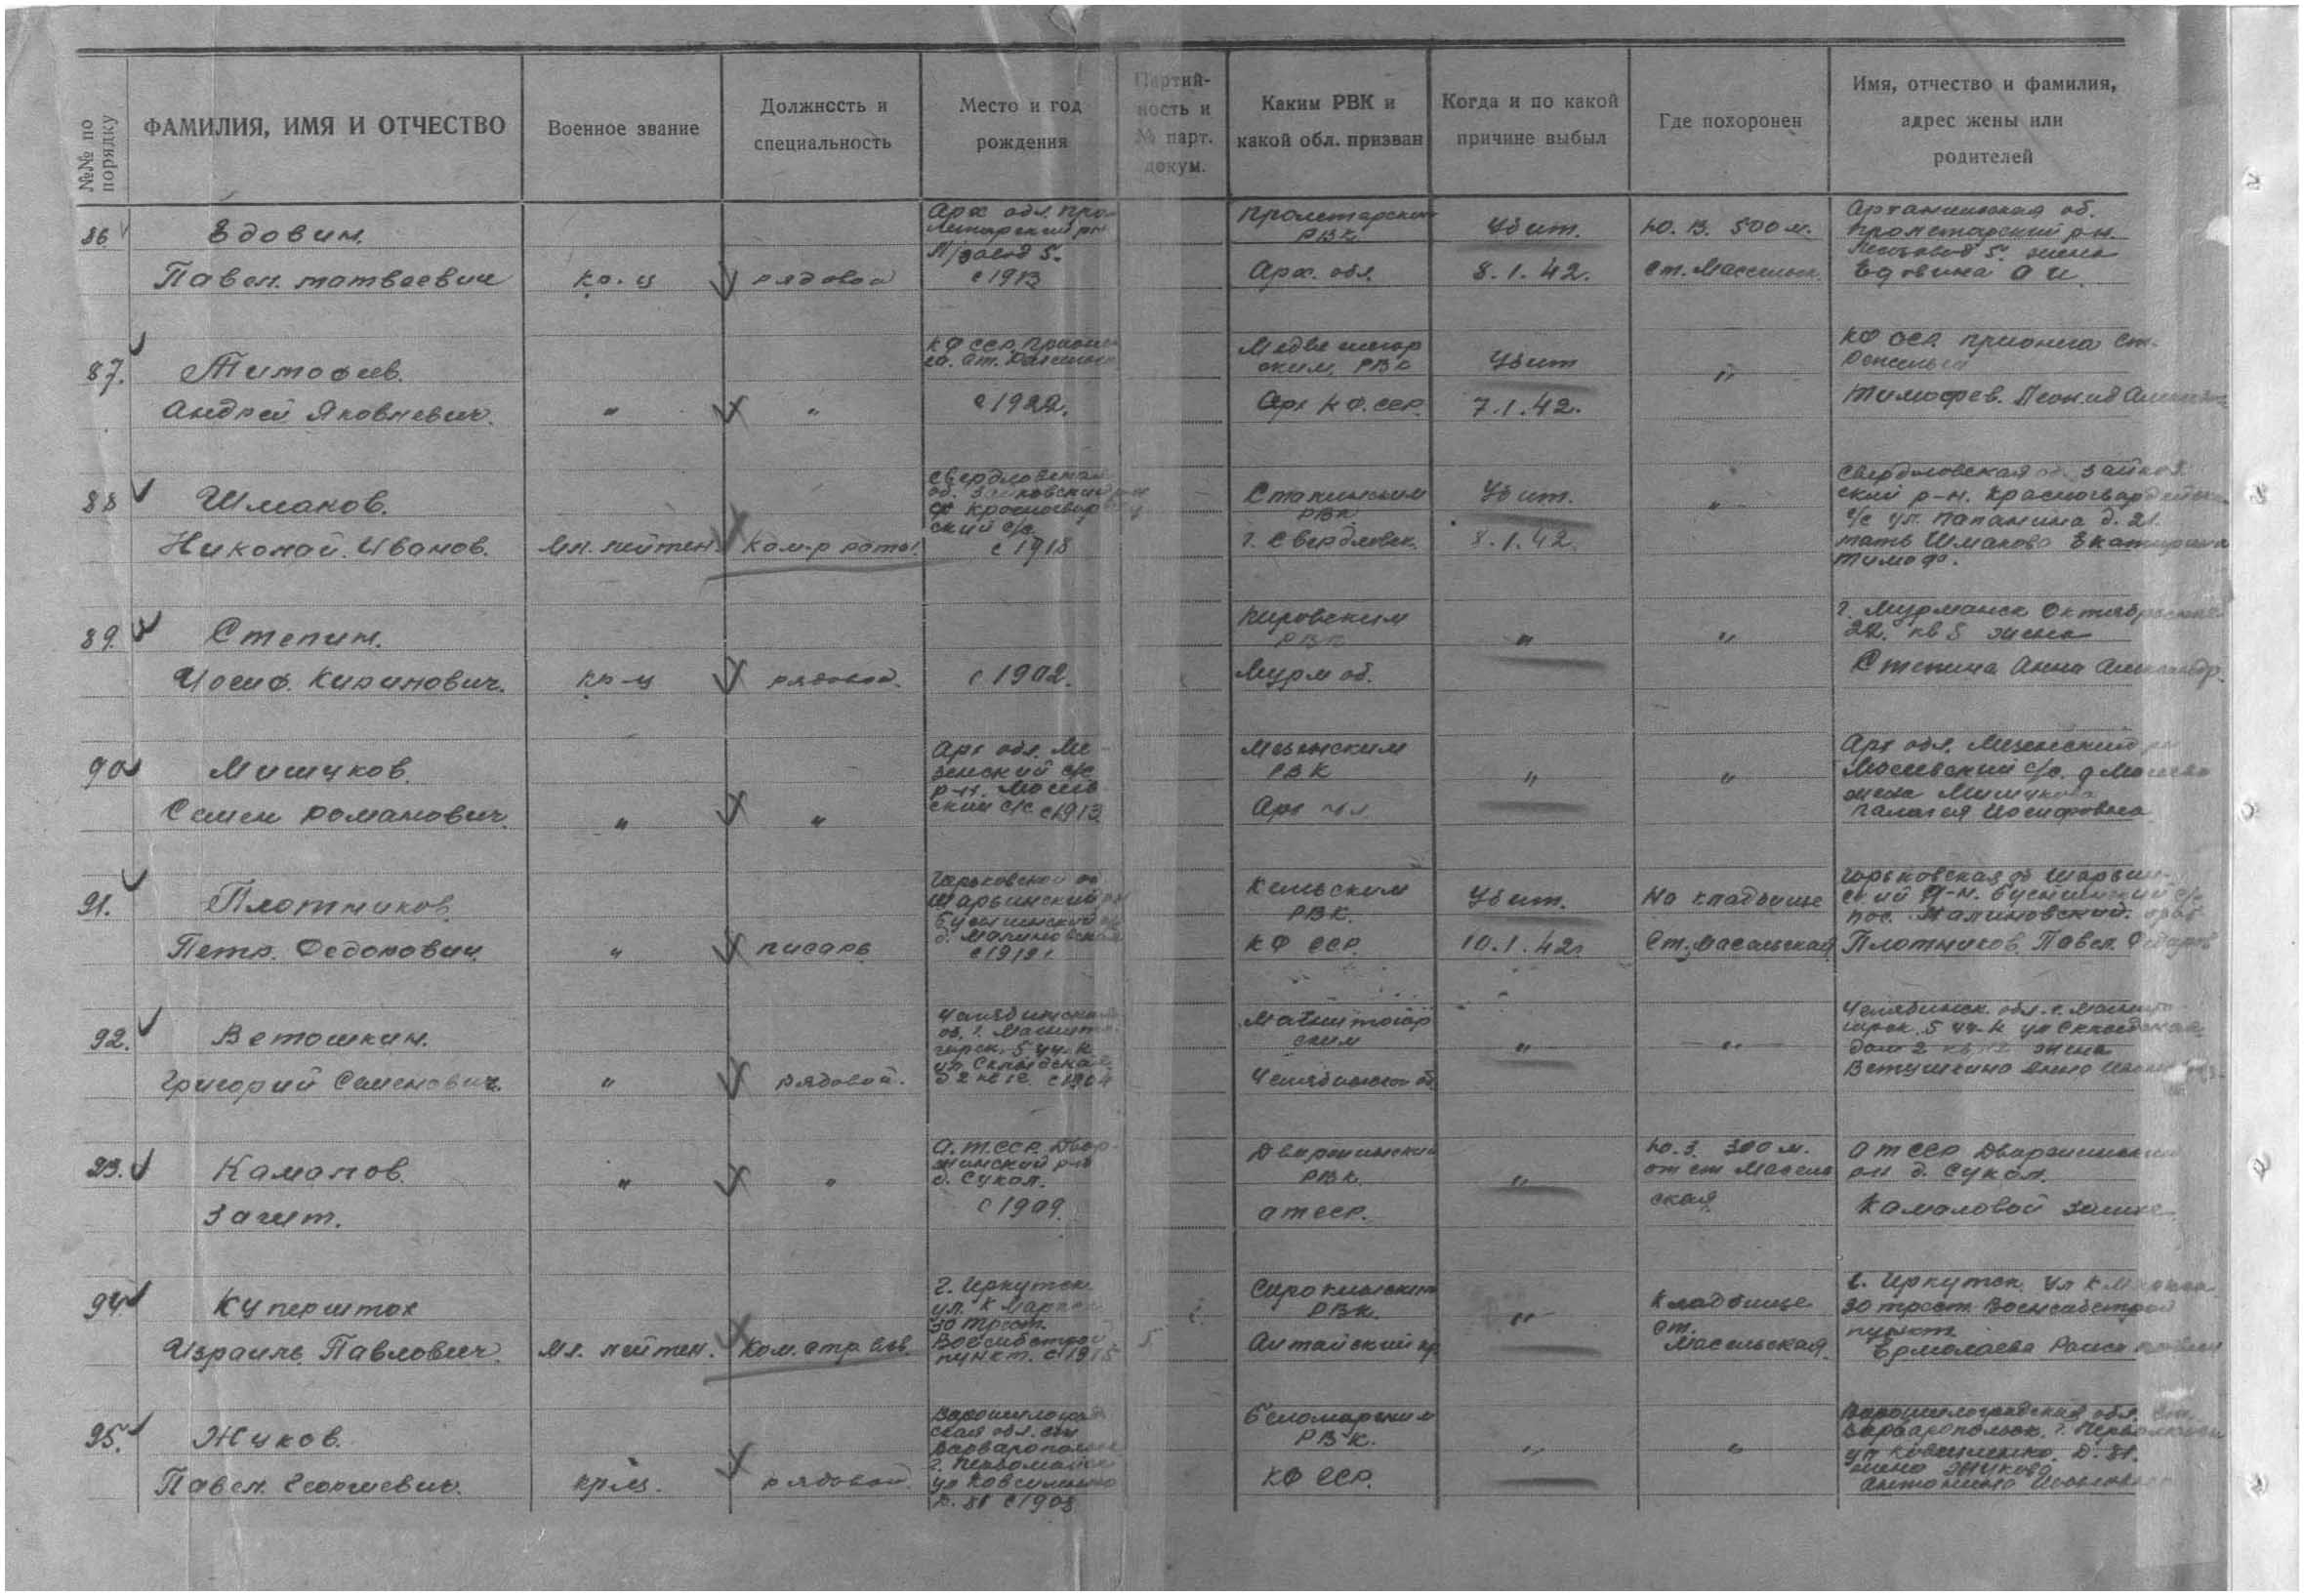 №№ по порядку
ФАМИЛИЯ, ИМЯ И ОТЧЕСТВО
Военное звание
Должность и
специальность
Место и год
рождения
Партий-
ность и
№ парт.
докум.
Каким РВК и
какой обл. призван
Когда и по какой
причине выбыл
Где похоронен
Имя, отчество и фамилия,
адрес жены или
родителей
86
Едовин.
Павел. матвеевич
кр-ц
рядовой
Арх обл. Про-
летарский рн
Л/завод 5.
с 1913
Пролетарским
РВК
Арх. обл.
Убит.
8.1.42.
Ю. В. 500 м.
ст. Массельск.
об.
пролетарский р-н.
Лесозавод 5. жена
Едовина А И.
87.
Тимофеев.
Андрей Яковлевич.
"
"
КФ ССР
с 1922.
Медвежьегор
ским. РВК
КФ. ССР.
Убит
7.1.42.
"
КФ ССР ст.
Тимофеев. Леонид
88
Шмаков.
Николай. Иванов.
Мл. лейтен.
Ком-р роты.
Свердловская
об. Зайковский р-н
Красногвардей
ский с/с.
с 1918
РВК
г. Свердловск.
Убит.
8.1.42.
"
Свердловская об. Зайков
ский р-н. Красногвардейск
с/с ул. Папанина д. 21.
мать Шмакова Екатерина
Тимоф.
89.
Степин.
Иосиф. Кирикович.
кр-ц
рядовой.
с 1902.
Кировским
РВК
Мурм об.
"
"
г. Мурманск Октябрьская
22. кв 5 жена
Степина Анна Александр.
90
Мишуков.
Семен Романович.
"
"
Арх обл. Ме-
зенский
р-н.
ский с/с с 1913
Мезенским
РВК
Арх обл
"
"
Арх обл. Мезенский рн
с/с.
жена Мишукова
Палагея Иосифовна
91.
Плотников.
Петр. Федорович.
"
писарь
Горьковской об
Шарьинский рн
с 1919г
Кемьским
РВК.
КФ ССР.
Убит.
10.1.42г
На кладбище
Ст. Масельская
Горьковская об Шарьин-
ский р-н. с/с
пос. Малиновский. брат
Плотников. Павел. Федоров
92.
Ветошкин.
Григорий Семенович.
"
рядовой.
Челябинская
об. г. Магнито-
горск. 5 уч-к
ул. Складская
д 2 кв 12. с 1904
Магнитогор
ским
Челябинской об.
"
"
Челябинск. обл. г. Магнито
горск. 5 уч-к ул Складская
дом 2 кв 12 жена
93.
Камалов.
Загит.
"
"
А.Т.ССР. Двор-
жинский р-н
д. Сукол.
с 1909.
РВК.
АТССР.
"
Ю. З. 300 м.
от ст Масель
ская
АТССР
рн д. Сукол.
Камаловой
94
Куперштох
Израиль. Павлович.
Мл. лейтен.
Ком. стр. взв.
г. Иркутск
ул. К Маркса
30 трест.
пункт. с 1915
РВК.
Алтайский кр
"
Кладбище
ст.
Масельская.
г. Иркутск. ул К Маркса
30 трест
пункт
Ермолаева Раиса
95.
Жуков.
Павел. Георгиевич.
кр-ц.
рядовой
Ворошиловград
ская обл. ст
г. Первомайск
Д. 81 с 1908
Беломорским
РВК.
КФ ССР.
"
"
Ворошиловградская обл. ст.
г. Первомайск
Д. 81.
жена Жукова
Антонина